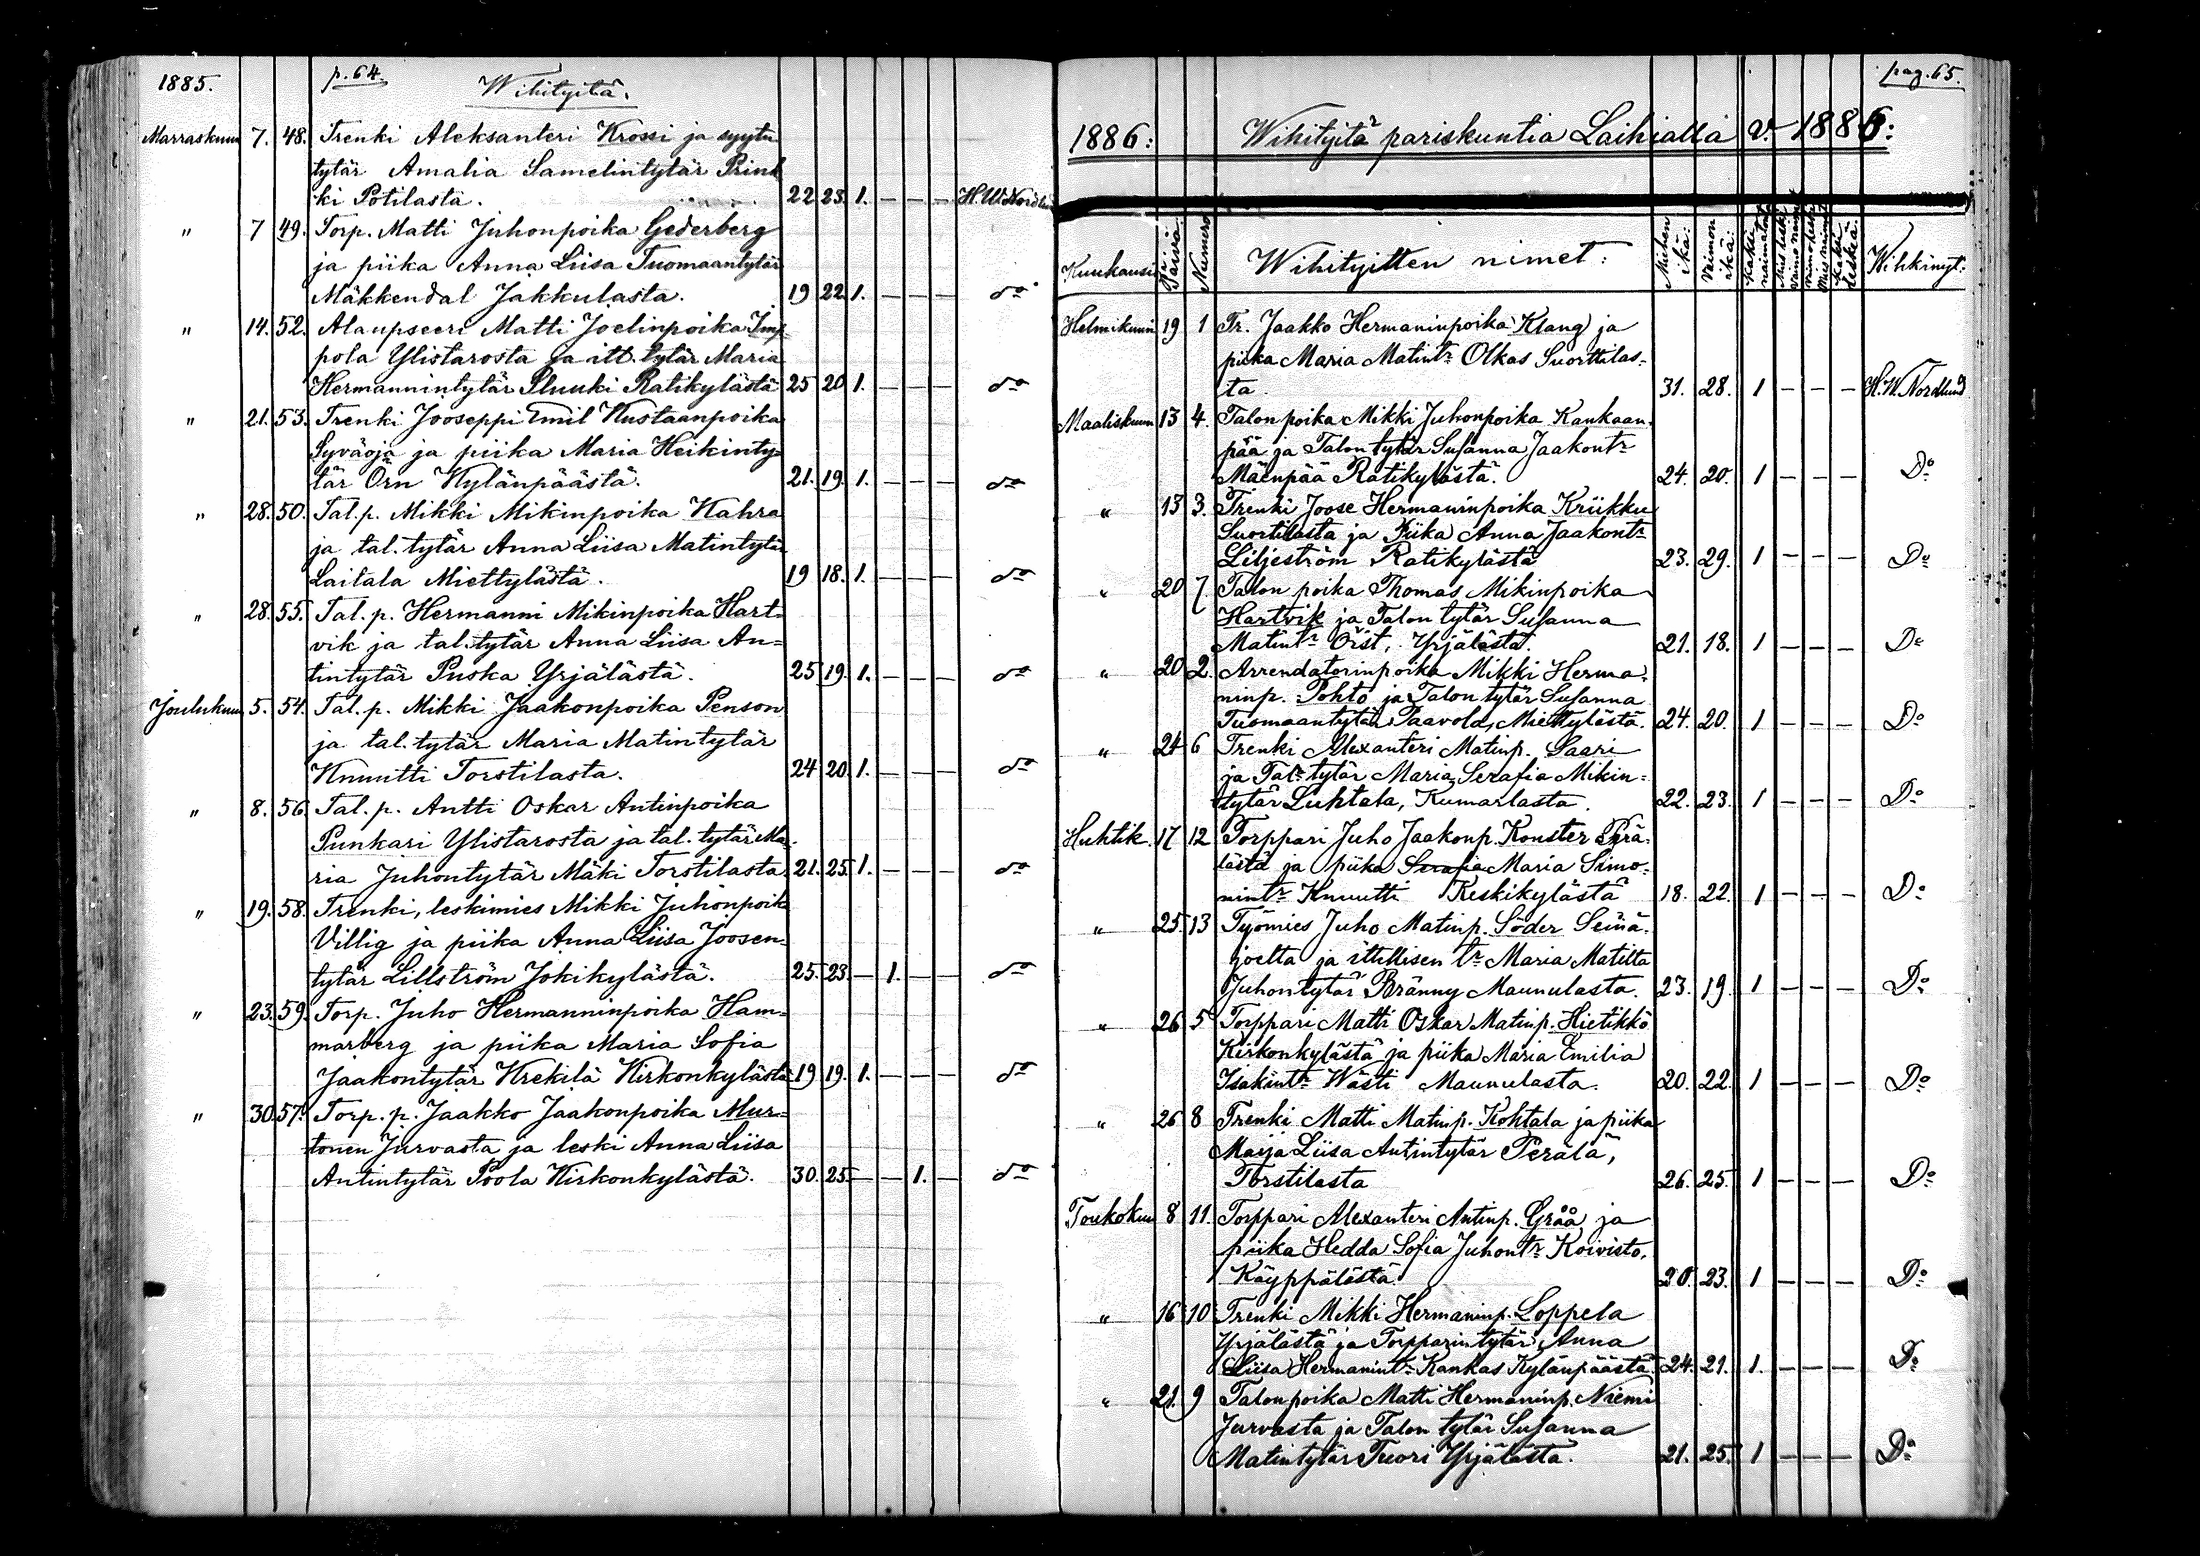 1885.
p. 64.
Wihityitä.
Marraskuun 7. 48. Trenki Aleksanteri Krossi ja syytn
tytär Amalia Samelintytär Prink
ki Potilasta. 22 23. 1. — — — H.W. Nordlund
" 7 49. Torp. Matti Juhonpoika Gederberg
ja piika Anna Liisa Tuomaantytär
Mäkkendal Jakkulasta. 19 22 1. — — — do
" 14. 52. Alaupseeri Matti Joelinpoika Imp
pola Ylistarosta ja itt. tytär Maria
Hermannintytär Pluuki Ratikylästä 25 20 1. — — — do
" 21. 53. Trenki Jooseppi Emil Kustaanpoika
Syväoja ja piika Maria Heikinty-
tär Örn Kylänpäästä. 21. 19. 1. — — — do
" 28. 50. Tal. p. Mikki Mikinpoika Kahra
ja tal. tytär Anna Liisa Matintytär
Laitala Miettylästä. 19 18. 1. — — — do
" 28. 55. Tal. p. Hermanni Mikinpoika Hart-
vik ja tal. tytär Anna Liisa An=
tintytär Puska Yrjälästä. 25 19. 1. — — — do
Joulukuun 5. 54. Tal. p. Mikki Jaakonpoika Penson
ja tal. tytär Maria Matintytär
Knuutti Torstilasta. 24 20 1. — — — do
" 8. 56 Tal. p. Antti Oskar Antinpoika
Punkari Ylistarosta ja tal. tytär Ma-
ria Juhontytär Mäki Torstilasta 21. 25 1. — — — do
" 19. 58. Trenki, leskimies Mikki Juhonpoik
Villig ja piika Anna Liisa Joosen-
tytär Lillström Jokikylästä. 25. 23. — 1. — — do
" 23. 59. Torp. Juho Hermanninpoika Ham-
marberg ja piika Maria Sofia
Jaakontytär Krekilä Kirkonkylästä 19 19. 1. — — — do
" 30 57. Torp. p. Jaakko Jaakonpoika Mur-
tonen Jurvasta ja leski Anna Liisa
Antintytär Poola Kirkonkylästä. 30. 25. — — 1. — do
pag. 65.
1886: Wihityitä pariskuntia Laihialla v. 1886:
Kuukausi Päivä: Numero Wihityitten nimet: Miehen ikä: Vaimon ikä: Wihkinyt:
Helmikuun 19 1 Tr. Jaakko Hermaninpoika Klang ja
piika Maria Matintr. Olkas Suorttilas-
ta. 31. 28. 1 — — — H.W. Nordlund
Maaliskuun 13 4. Talon poika Mikki Juhonpoika Kankaan
pää ja Talon tytär Susanna Jaakontr.
Mäenpää Ratikylästä. 24. 20. 1 — — — Do
" 13 3. Trenki Joose Hermaninpoika Kriikku
Suortilasta ja Piika Anna Jaakontr.
Liljeström Ratikylästä 23. 29. 1 — — — Do
" 20 7. Talon poika Thomas Mikinpoika
Hartvik ja Talon tytär Susanna
Matintr. Öist, Yrjälästä. 21. 18. 1 — — — Do
" 20 2. Arrendatorinpoika Mikki Herma-
ninp. Pohto ja Talon tytär Susanna
Tuomaantytär Paavola, Miettylästä. 24. 20. 1 — — — Do
" 24 6 Trenki Alexanteri Matinp. Saari
ja Tal. tytär Maria Serafia Mikin-
tytär Luhtala, Kumarlasta. 22. 23. 1 — — — Do
Huhtik. 17 12 Torppari Juho Jaakonp. Konster Perä-
lästä ja piika Serafia Maria Simo-
nintr. Knuutti Keskikylästä 18. 22. 1 — — — Do
" 25 13 Työmies Juho Matinp. Söder Seinä-
joelta ja ittillisen tr. Maria Matilta
Juhontytär Bränny Maunulasta. 23. 19. 1 — — — Do
" 26 5 Torppari Matti Oskar Matinp. Hietikkö
Kirkonkylästä ja piika Maria Emilia
Isakintr. Wästi Maunulasta. 20. 22. 1 — — — Do
" 26 8 Trenki Matti Matinp. Kohtala ja piika
Maija Liisa Antintytär Perälä,
Torstilasta 26. 25. 1 — — — Do
Toukokuu 8 11. Torppari Alexanteri Antinp. Gråå, ja
piika Hedda Sofia Juhontr. Koivisto,
Käyppälästä. 20. 23. 1 — — — Do
" 16 10 Trenki Mikki Hermaninp. Loppela
Yrjälästä ja Torpparin tytär Anna
Liisa Hermanintr. Kankas Kylänpäästä 24. 21. 1. — — — Do
" 21. 9 Talon poika Matti Hermaninp. Niemi
Jurvasta ja Talon tytär Susanna
Matintytär Tuori Yrjälästä. 21. 25. 1 — — — Do